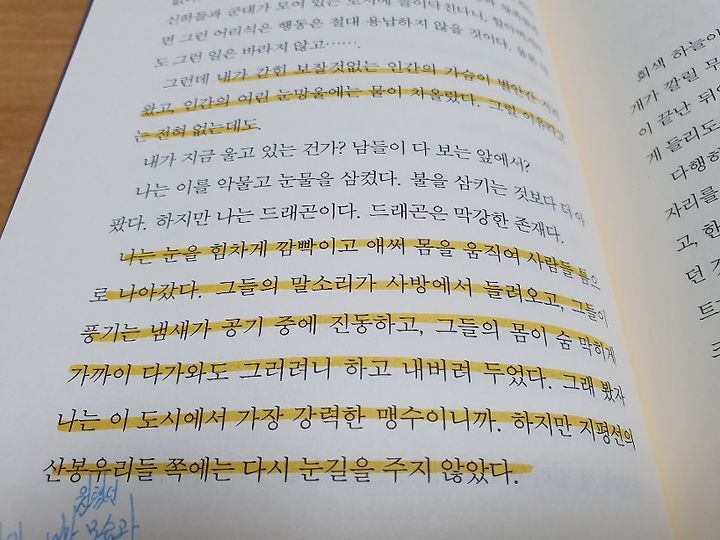 신하들과 군대가 모여 있는 도시에
면 그런 어리석은 행동은 절대 용납하지 않을 것이다.
도 그런 일은 바라지 않고…….
그런데 내가 갇힌 보잘것없는 인간의 가슴이 별안간
왔고, 인간의 어린 눈망울에는 물이 차올랐다. 그럴 이유라고
는 전혀 없는데도.
내가 지금 울고 있는 건가? 남들이 다 보는 앞에서?
나는 이를 악물고 눈물을 삼켰다. 불을 삼키는 것보다 더 아
팠다. 하지만 나는 드래곤이다. 드래곤은 막강한 존재다.
나는 눈을 힘차게 깜빡이고 애써 몸을 움직여 사람들 틈으
로 나아갔다. 그들의 말소리가 사방에서 들려오고, 그들이
풍기는 냄새가 공기 중에 진동하고, 그들의 몸이 숨 막히게
가까이 다가와도 그러려니 하고 내버려 두었다. 그래 봤자
나는 이 도시에서 가장 강력한 맹수이니까. 하지만 지평선의
산봉우리들 쪽에는 다시 눈길을 주지 않았다.
회색 하늘이
개가 갈릴 무
이 끝난 뒤
게 들리도
다행히
자리를
고, 한
던
트